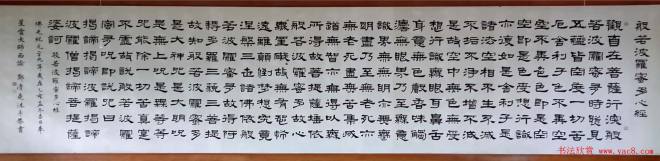 般若波羅蜜多心經
觀自在菩薩行深般
若波羅蜜多時照見
五蘊皆空度一切苦
厄舍利子色不異空
空不異色色即是空
空即是色受想行識
亦復如是舍利子是
諸法空相不生不滅
不垢不淨不增不減
是故空中無色無受
想行識無眼耳鼻舌
身意無色聲香味觸
法無眼界乃至無意
識界無無明亦無無
明盡乃至無老死亦
無老死盡無苦集滅
道無智亦無得以無
所得故菩提薩埵依
般若波羅蜜多故心
無罣礙無罣礙故無有恐怖
遠離顛倒夢想究竟
涅槃三世諸佛依般
若波羅蜜多故得阿
耨多羅三藐三菩提
故知般若波羅蜜多
是大神咒是大明咒
是無上咒是無等等
咒能除一切苦真實
不虛故說般若波羅
蜜多咒即說咒曰
揭諦揭諦波羅揭諦
波羅僧揭諦菩提薩
婆訶
般若波羅蜜多心經
书法欣赏
www.yac8.com